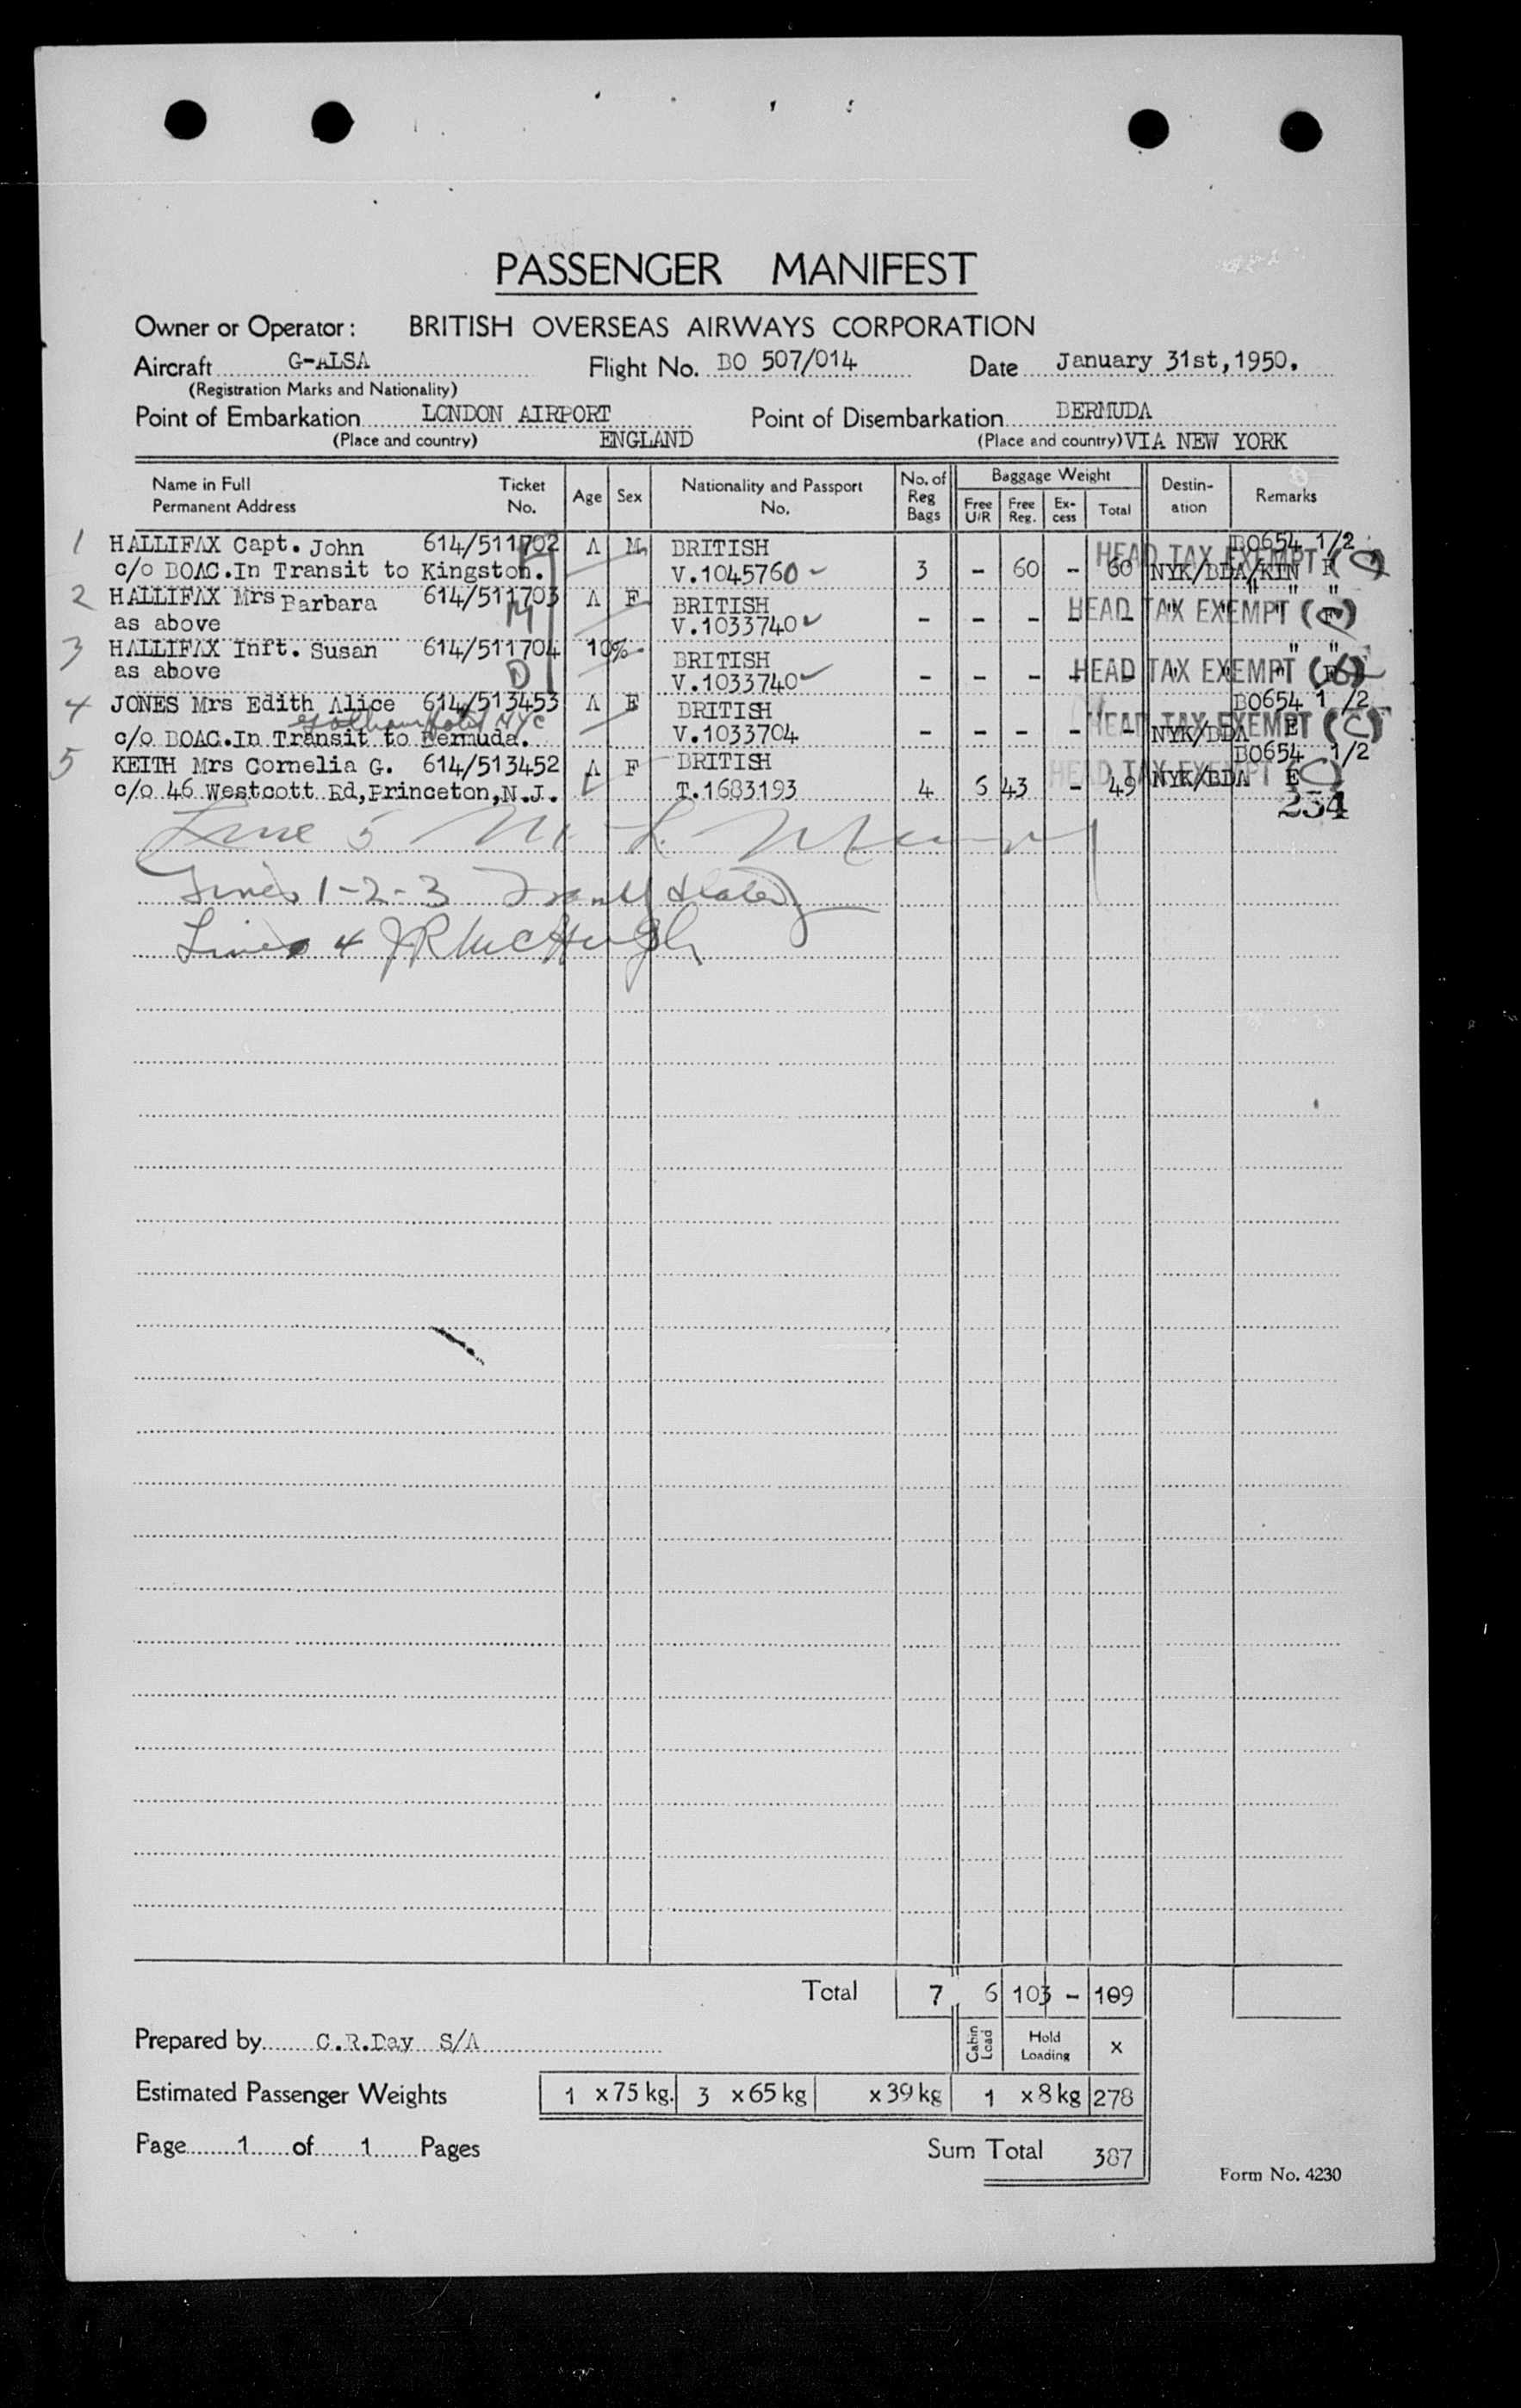 PASSENGER MANIFEST
Owner or Operator: BRITISH OVERSEAS AIRWAYS CORPORATION
Aircraft G-ALSA Flight No. BO 507/014 Date January 31st, 1950.
(Registration Marks and Nationality)
Point of Embarkation LONDON AIRPORT Point of Disembarkation BERMUDA
(Place and country) ENGLAND (Place and country) VIA NEW YORK
Name in Full Ticket Age Sex Nationality and Passport No. of Reg Bags Baggage Weight Destin- Remarks
Permanent Address No. No. Free U/R Free Reg. Ex- cess Total ation
1 HALLIFAX Capt. John 614/511702 A M BRITISH BO654 1/2
c/o BOAC.In Transit to Kingston. H V.1045760 3 - 60 - 60 NYK/BDA/KIN F HEAD TAX EXEMPT (C)
2 HALLIFAX Mrs Barbara 614/511703 A F BRITISH " "
as above M V.1033740 - - - - HEAD TAX EXEMPT
3 HALLIFAX Inft. Susan 614/511704 10% BRITISH " "
as above D V.1033740 - - - - HEAD TAX EXEMPT
4 JONES Mrs Edith Alice 614/513453 A F BRITISH BO654 1/2
Hotel NYC
c/o BOAC.In Transit to Bermuda. V.1033704 - - - - - NYK/BDA E HEAD TAX EXEMPT (C)
5 KEITH Mrs Cornelia G. 614/513452 A F BRITISH BO654 1/2
c/o 46 Westcott Rd,Princeton,N.J. T.1683193 4 6 43 - 49 NYK/BDA E HEAD TAX EXEMPT (C)
234
Line 5 M. L.
Lines 1-2-3
Line 4 JR McHugh
Total 7 6 103 - 109
Prepared by C.R.Day S/A Cabin Load Hold Loading x
Estimated Passenger Weights 1 x 75 kg. 3 x 65 kg x 39 kg 1 x 8 kg 278
Page 1 of 1 Pages Sum Total 387
Form No. 4230